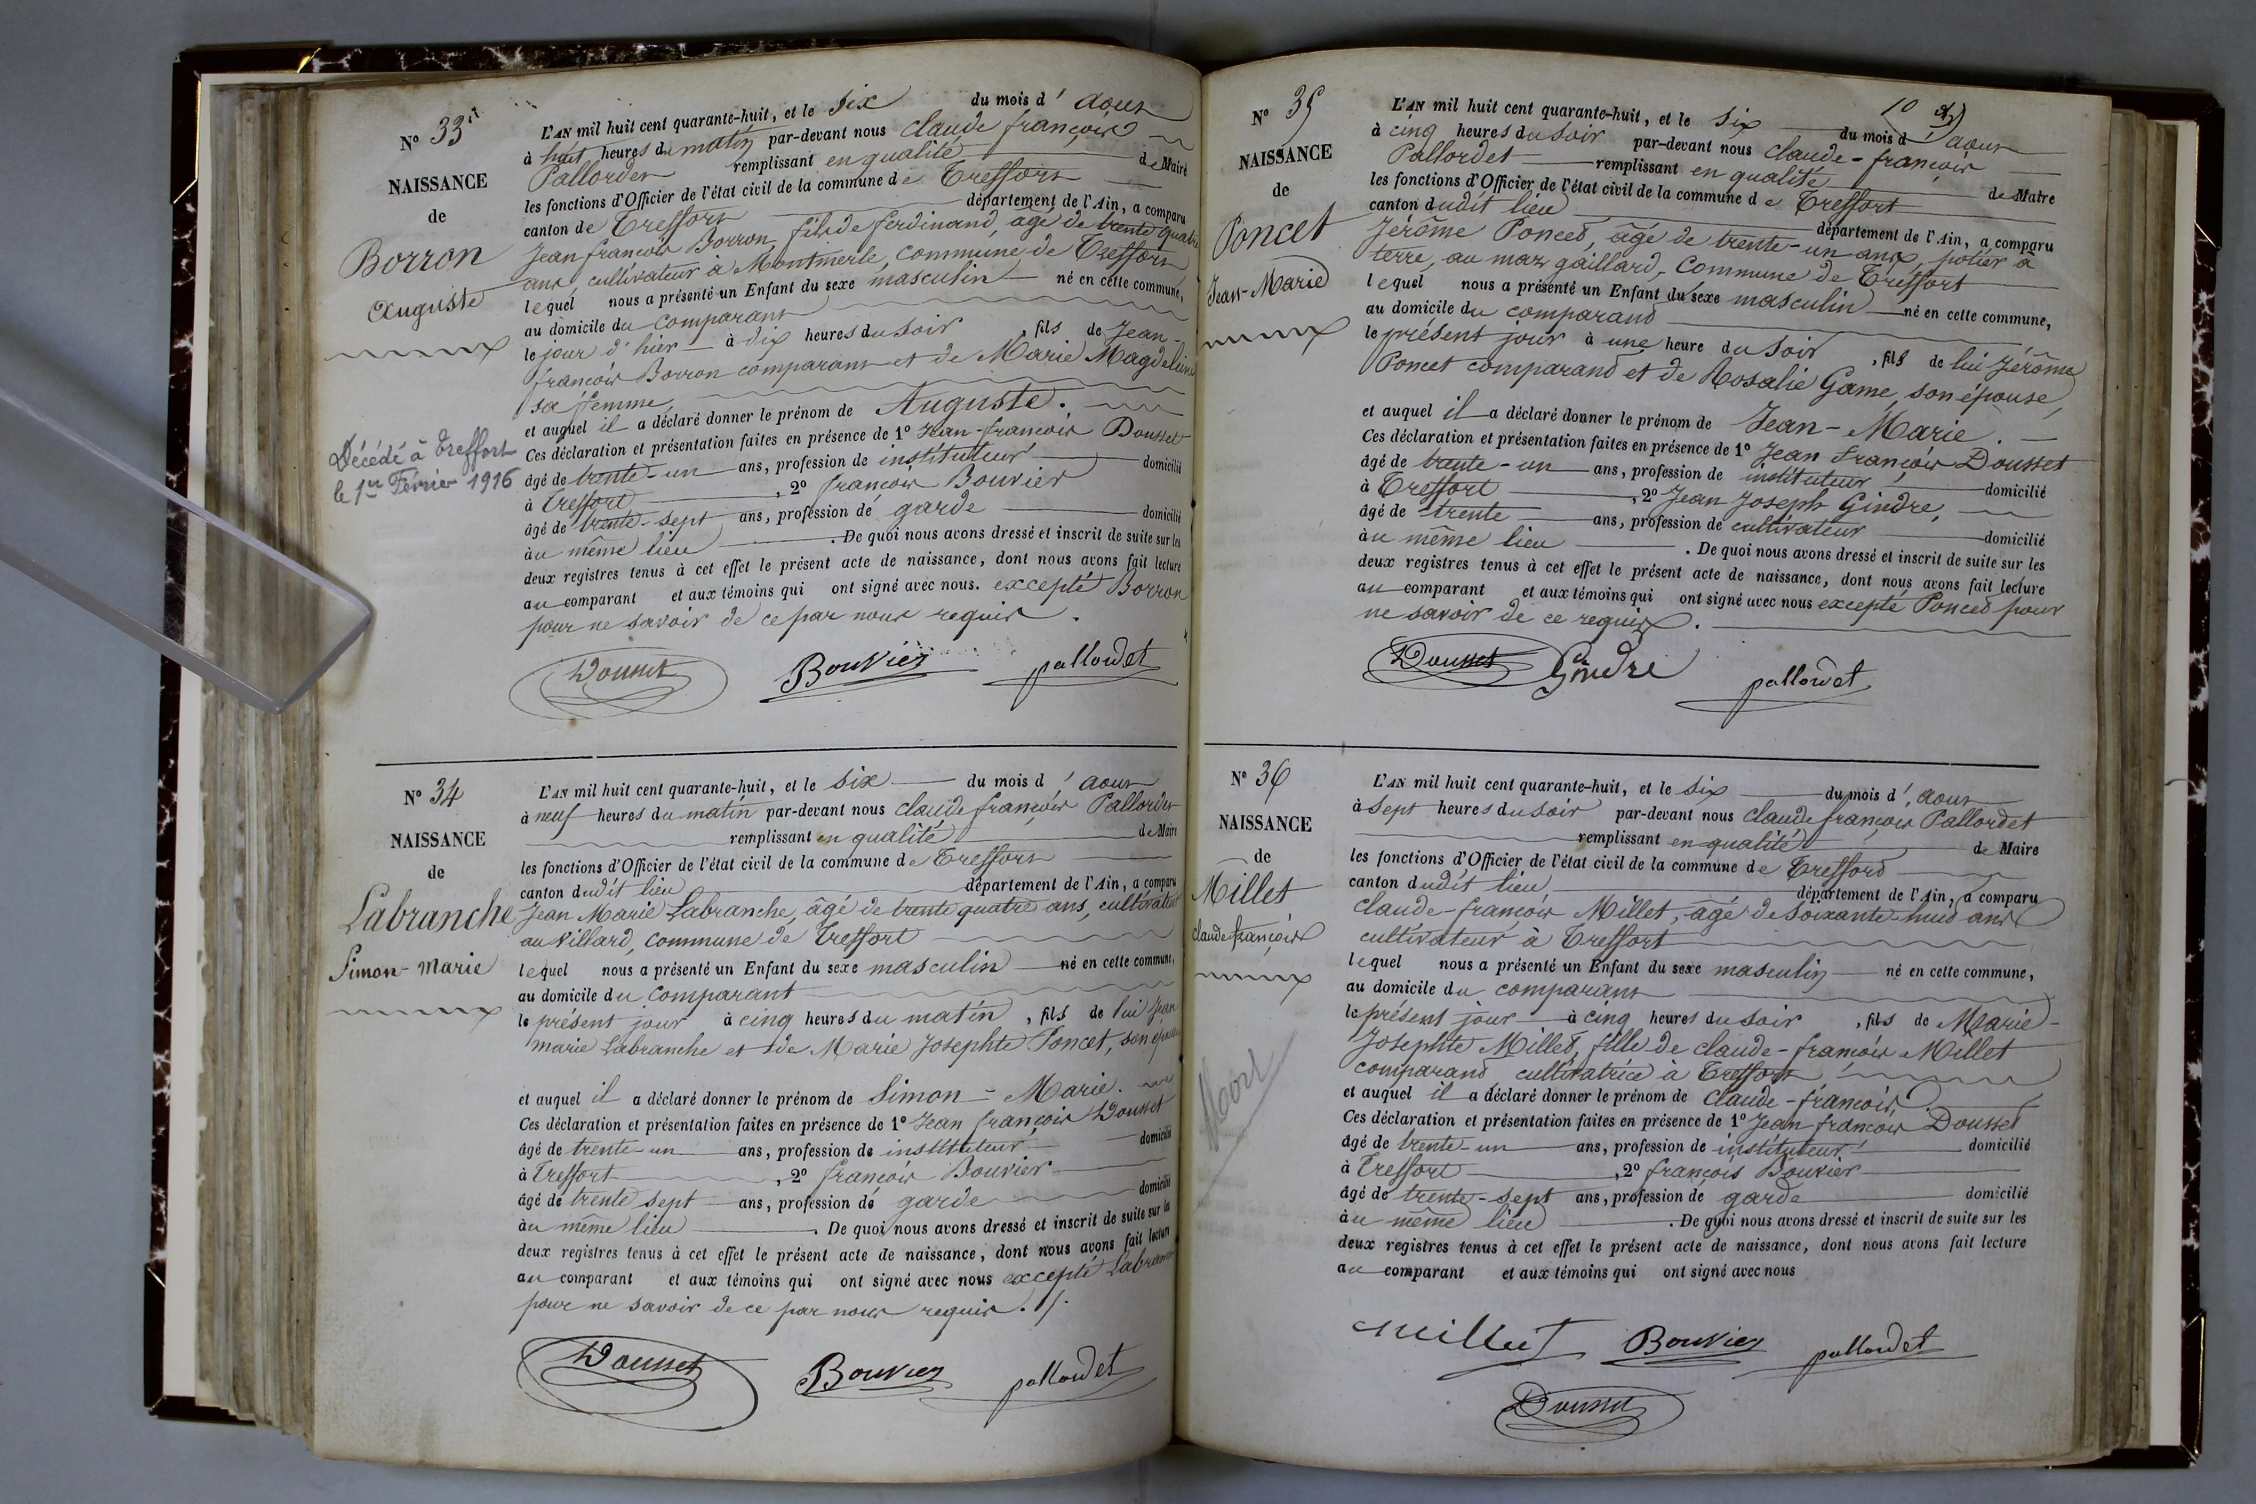 N° 33
NAISSANCE
de
Borron
Auguste
Décédé à Treffort
le 1er Février 1916
L'AN mil huit cent quarante-huit, et le six du mois d'aout
à huit heures du matin par-devant nous Claude françois
Pallordet remplissant en qualité de Maire
les fonctions d'Officier de l'état civil de la commune de Treffort
canton de Treffort département de l'Ain, a comparu
Jean françois Borron, fils de ferdinand, âgé de trente quatre
ans, cultivateur à Montmerle, commune de Treffort
lequel nous a présenté un Enfant du sexe masculin né en cette commune,
au domicile du comparant
le jour d'hier à dix heures du soir, fils de Jean-
françois Borron comparant et de Marie Magdeleine
sa femme,
et auquel il a déclaré donner le prénom de Auguste.
Ces déclaration et présentation faites en présence de 1° Jean-françois Dousset
âgé de trente-un ans, profession de instituteur domicilié
à Treffort, 2° françois Bouvier
âgé de trente-sept ans, profession de garde domicilié
au même lieu. De quoi nous avons dressé et inscrit de suite sur les
deux registres tenus à cet effet le présent acte de naissance, dont nous avons fait lecture
au comparant et aux témoins qui ont signé avec nous. excepté Borron
pour ne savoir de ce par nous requis.
Dousset Bouvier pallordet
N° 34
NAISSANCE
de
Labranche
Simon-Marie
L'AN mil huit cent quarante-huit, et le six du mois d'aout
à neuf heures du matin par-devant nous Claude françois Pallordet
remplissant en qualité de Maire
les fonctions d'Officier de l'état civil de la commune de Treffort
canton dudit lieu département de l'Ain, a comparu
Jean Marie Labranche, âgé de trente quatre ans, cultivateur
au Villard, commune de Treffort
lequel nous a présenté un Enfant du sexe masculin né en cette commune,
au domicile du comparant
le présent jour à cinq heures du matin, fils de lui Jean
marie Labranche et de Marie Josephte Poncet, son épouse
et auquel il a déclaré donner le prénom de Simon-Marie.
Ces déclaration et présentation faites en présence de 1° Jean françois Dousset
âgé de trente-un ans, profession de instituteur domicilié
à Treffort, 2° françois Bouvier
âgé de trente sept ans, profession de garde domicilié
au même lieu. De quoi nous avons dressé et inscrit de suite sur les
deux registres tenus à cet effet le présent acte de naissance, dont nous avons fait lecture
au comparant et aux témoins qui ont signé avec nous excepté Labranche
pour ne savoir de ce par nous requis.
Dousset Bouvier pallordet
10
N° 35
NAISSANCE
de
Poncet
Jean-Marie
L'AN mil huit cent quarante-huit, et le six du mois d'aout
à cinq heures du soir par-devant nous Claude-françois
Pallordet remplissant en qualité de Maire
les fonctions d'Officier de l'état civil de la commune de Treffort
canton dudit lieu département de l'Ain, a comparu
Jérôme Poncet, âgé de trente-un ans, potier à
terre, au maz gaillard, commune de Treffort
lequel nous a présenté un Enfant du sexe masculin né en cette commune,
au domicile du comparant
le présent jour à une heure du soir, fils de lui Jérôme
Poncet comparant et de Rosalie Game, son épouse,
et auquel il a déclaré donner le prénom de Jean-Marie.
Ces déclaration et présentation faites en présence de 1° Jean françois Dousset
âgé de trente-un ans, profession de instituteur domicilié
à Treffort, 2° Jean Joseph Gindre,
âgé de trente ans, profession de cultivateur domicilié
au même lieu. De quoi nous avons dressé et inscrit de suite sur les
deux registres tenus à cet effet le présent acte de naissance, dont nous avons fait lecture
au comparant et aux témoins qui ont signé avec nous excepté Poncet pour
ne savoir de ce requis.
Dousset Gindre pallordet
N° 36
NAISSANCE
de
Millet
Claude françois
Mort
L'AN mil huit cent quarante-huit, et le six du mois d'aout
à sept heures du soir par-devant nous Claude françois Pallordet
remplissant en qualité de Maire
les fonctions d'Officier de l'état civil de la commune de Treffort
canton dudit lieu département de l'Ain, a comparu
Claude-françois Millet, âgé de soixante-huit ans
cultivateur à Treffort
lequel nous a présenté un Enfant du sexe masculin né en cette commune,
au domicile du comparant
le présent jour à cinq heures du soir, fils de Marie-
Josephte Millet, fille de Claude-françois Millet
comparant cultivatrice à Treffort
et auquel il a déclaré donner le prénom de Claude-françois,
Ces déclaration et présentation faites en présence de 1° Jean françois Dousset
âgé de trente-un ans, profession de instituteur domicilié
à Treffort, 2° françois Bouvier
âgé de trente-sept ans, profession de garde domicilié
au même lieu. De quoi nous avons dressé et inscrit de suite sur les
deux registres tenus à cet effet le présent acte de naissance, dont nous avons fait lecture
au comparant et aux témoins qui ont signé avec nous
Millet Bouvier pallordet
Dousset